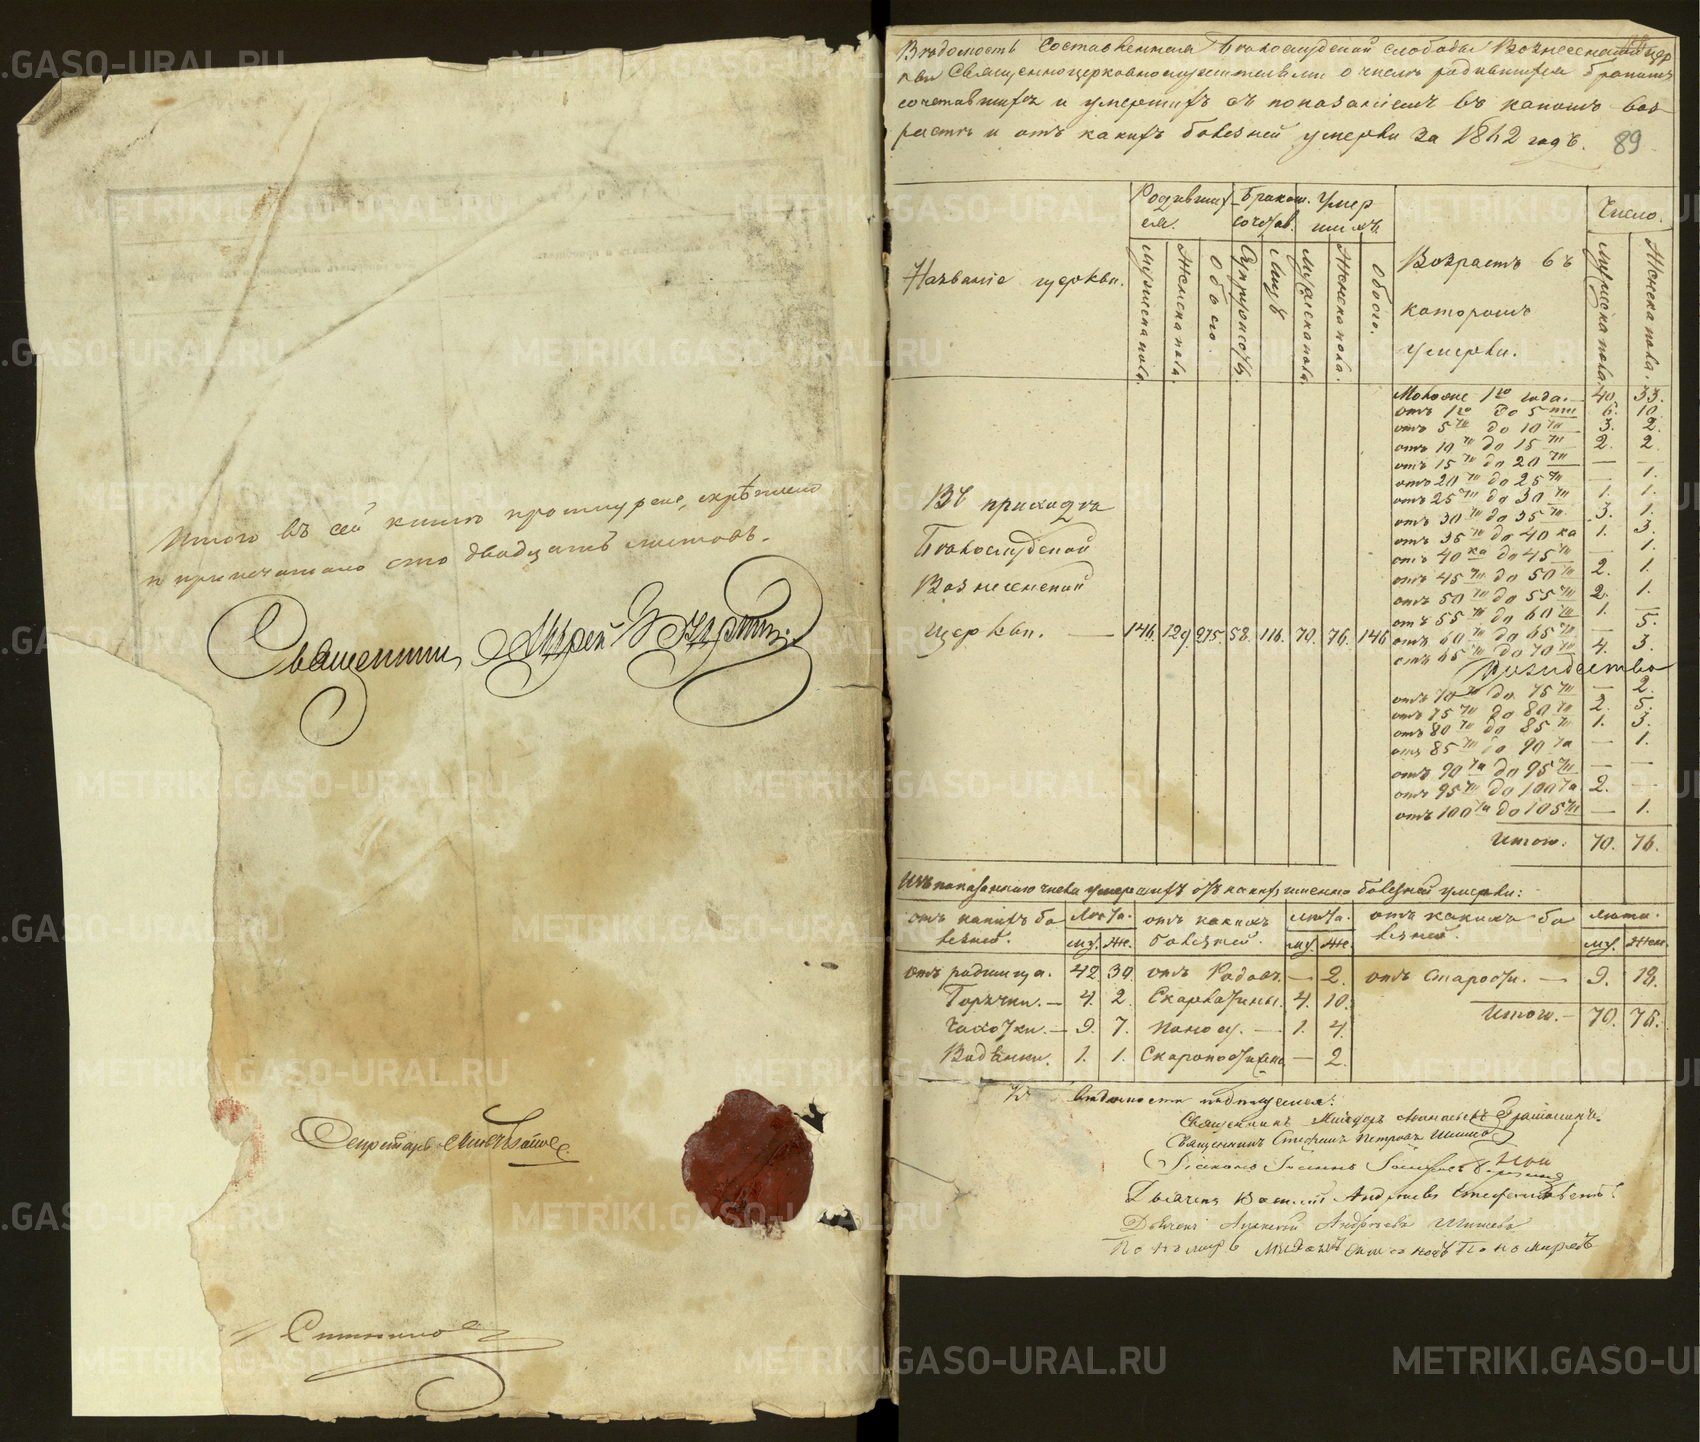 Итого въ сей книгѣ прошнуровано, скрѣплено
и припечатано сто двадцать листовъ.
Священникъ Андрей
Секретарь
Ведомость Составленная Белослудской слободы Вознесенской цер
кви Священноцерковнослужителями о числѣ родившихся бракомъ
сочетавшихся и умершихъ съ показаніемъ въ какомъ воз
растѣ и отъ какихъ болезней умерли за 1842 годъ.
89
Названіе церкви.
Родивших
ся.
Бракомъ
сочетав.
Умер
шихъ.
Мужеска пола.
Женска пола.
Обоего.
Супружествъ.
Лицъ
Мужеска пола.
Женска пола.
Обоего.
Возрастъ въ
которомъ
умерли.
Число.
Мужеска пола.
Женска пола.
Въ приходѣ
Белослудской
Вознесенской
церкви. — 146. 129. 275. 58. 116. 70. 76. 146
Моложе 1го года. 40. 33.
отъ 1го до 5ти 6. 10.
отъ 5ти до 10ти 3. 2.
отъ 10ти до 15ти 2. 2.
отъ 15ти до 20ти — —
отъ 20ти до 25ти — 1.
отъ 25ти до 30ти 1. 1.
отъ 30ти до 35ти 3. 1.
отъ 35ти до 40ка 1. 3.
отъ 40ка до 45ти — 1.
отъ 45ти до 50ти 2. 1.
отъ 50ти до 55ти 2. 1.
отъ 55ти до 60ти 1. —
отъ 60ти до 65ти — 5.
отъ 65ти до 70ти 4. 3.
отъ 70ти до 75ти — 2.
отъ 75ти до 80ти 2. 5.
отъ 80ти до 85ти 1. 3.
отъ 85ти до 90та — 1.
отъ 90та до 95ти — —
отъ 95ти до 100та 2. —
отъ 100та до 105ти — 1.
Итого. 70. 76.
Изъ показаннаго числа умершихъ отъ какихъ именно болезней умерли:
отъ какихъ бо
лезней.
Лета.
му. же.
отъ какихъ
болезней.
лета.
му. же.
отъ какихъ бо
лезней.
лета.
му. жен.
отъ родимца. 42. 30. отъ Родовъ. — 2. отъ старости. — 9. 18.
Горячки. — 4. 2. Скарлатины. 4. 10.
Итого. — 70. 76.
Чахотки. — 9. 7. Поносу. — 1. 4.
Водянки. 1. 1. — 2.
Къ ведомости подписуемся:
Священникъ
Священникъ Стефанъ Петровъ
Діаконъ Іоаннъ
Дьячекъ Василій Андреевъ
Дьячекъ Алексей Андреевъ
Пономарь Пономаревъ
METRIKI.GASO-URAL.RU